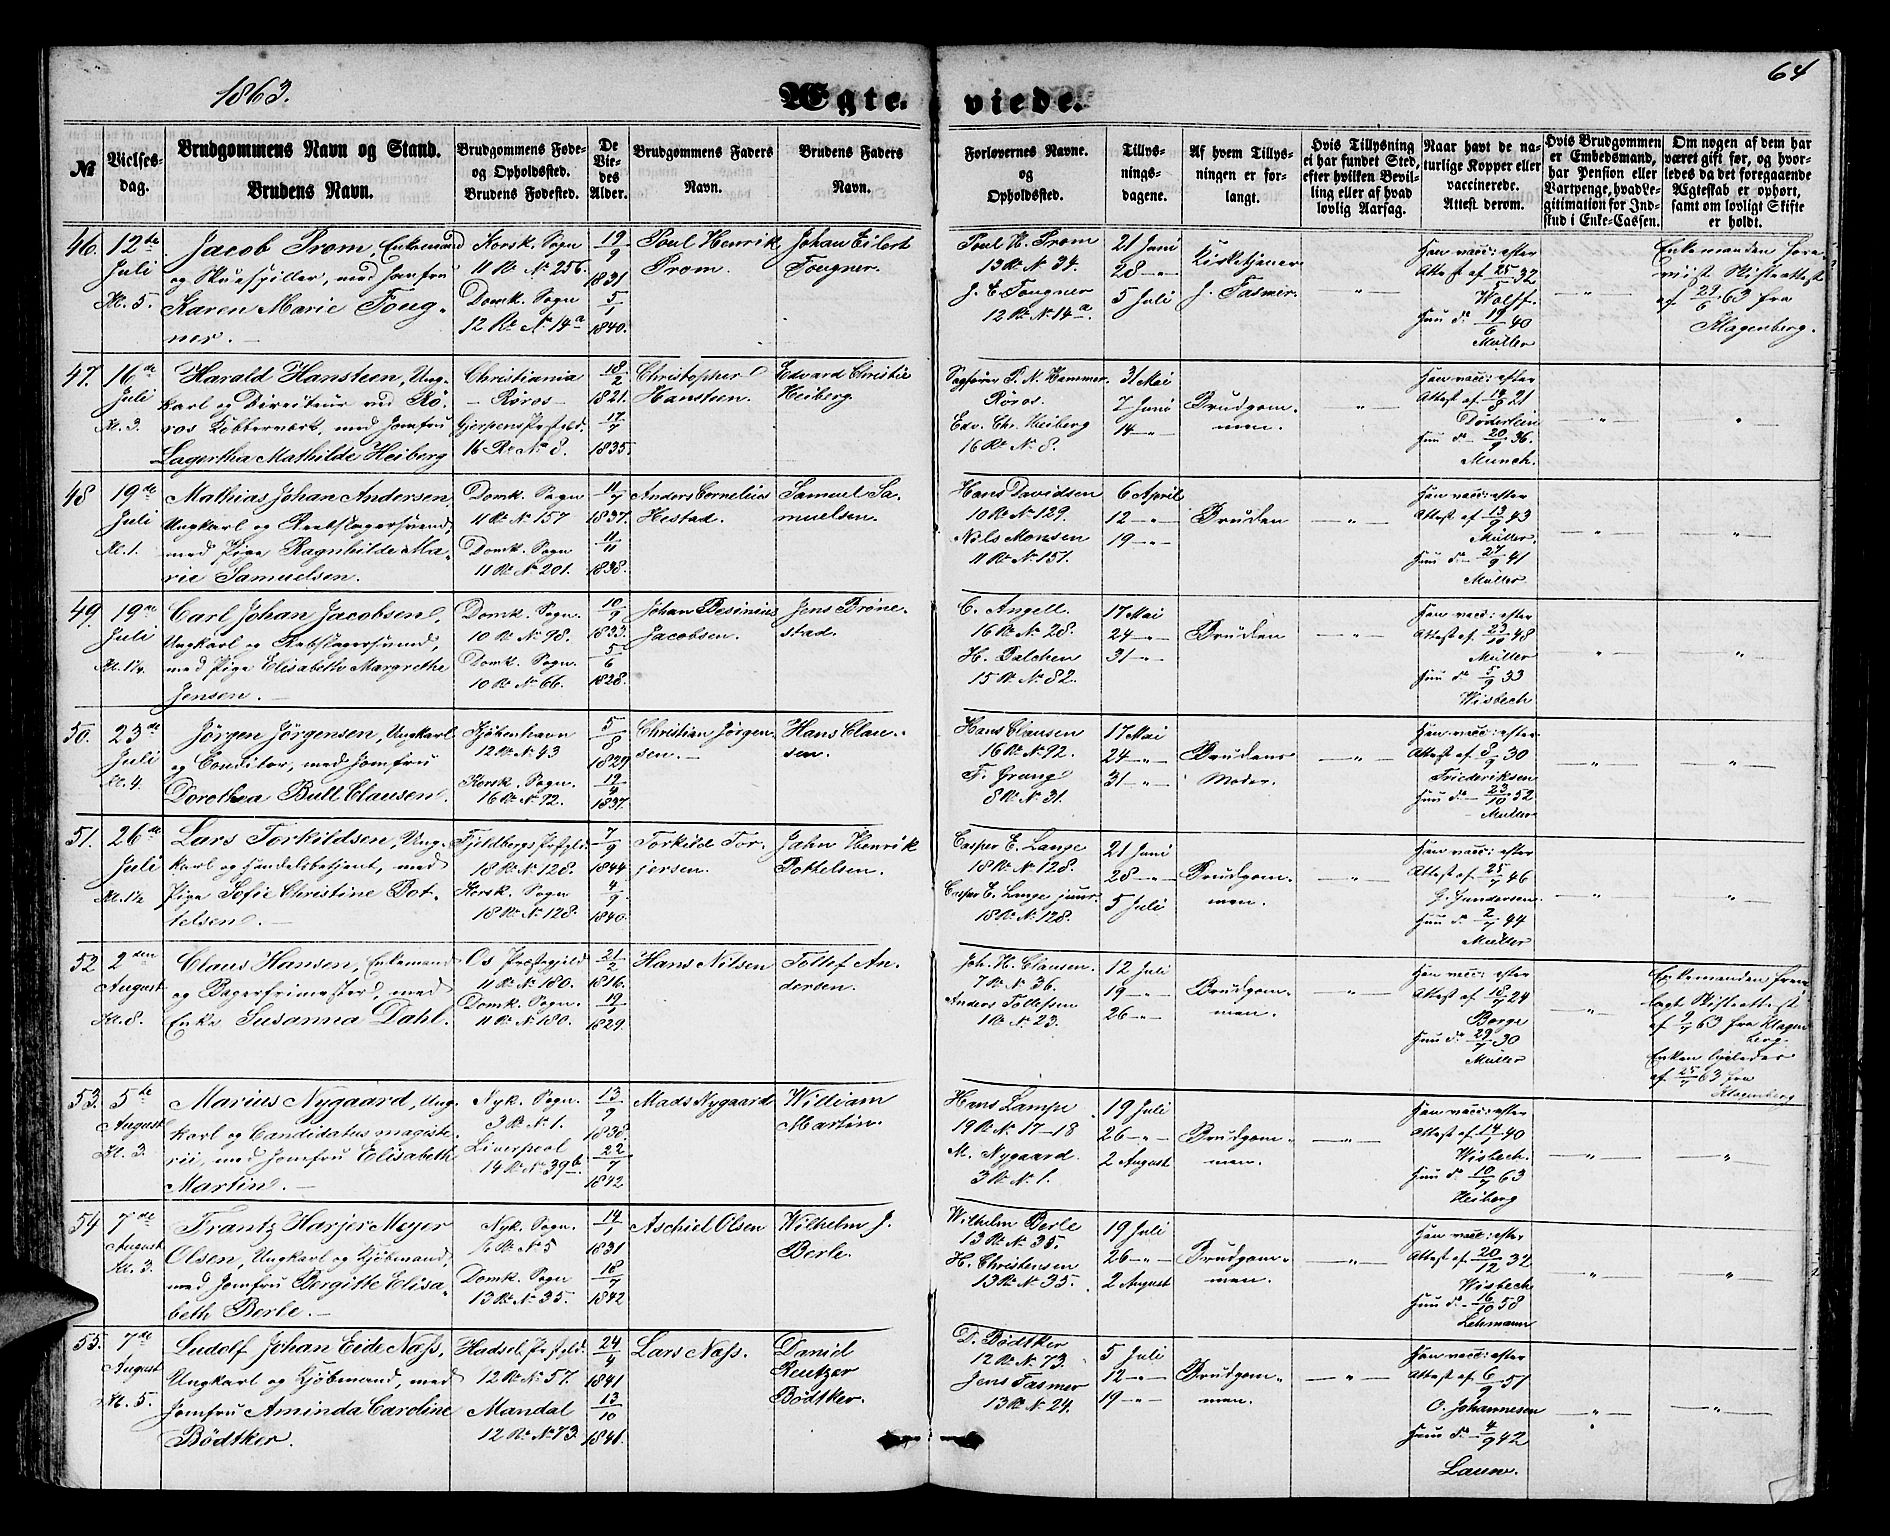 1863.
Ægte-
viede.
64
№
Vielses-
dag.
Brudgommens Navn og Stand.
Brudens Navn.
Brudgommens Føde-
og Opholdssted.
Brudens Fødested.
De
Vie-
des
Alder.
Brudgommens Faders
Navn.
Brudens Faders
Navn.
Forlovernes Navne.
og
Opholdssted.
Tillys-
nings-
dagene.
Af hvem Tillys-
ningen er for-
langt.
Hvis Tillysning
ei har fundet Sted,
efter hvilken Bevil-
ling eller af hvad
lovlig Aarsag.
Naar havt de na-
turlige Kopper eller
vaccinerede.
Attest derom.
Hvis Brudgommen
er Embedsmand,
har Pension eller
Vartpenge, hvad Le-
gitimation for Ind-
skud i Enke-Cassen.
Om nogen af dem har
været gift før, og hvor-
ledes da det foregaaende
Ægteskab er ophørt,
samt om lovligt Skifte
er holdt.
46. 12te Juli Kl. 5.
Jacob Prom, Enkemand
og Skuespiller, med Jomfru
Karen Marie Foug-
ner.
Korsk. Sogn
11 R. N. 256.
Domk. Sogn
12 R. N. 14a
19/9 1831
5/1 1840.
Poul Henrik
Prom.
Johan Eilert
Fougner.
Poul H. Prom
13 R. N. 34.
J. E. Fougner
12 R. N. 14a.
21 Juni
28 -"-
5 Juli
Kirketjener
J. Fasmer.
Han vacc: efter
Attest af 25/5 32
Wolff.
Hun do 19/6 40
Müller
Enkemanden fore-
viist Skifteattest
af 29/6 63 fra
Klagenberg.
47. 16de Juli Kl. 3.
Harald Hansteen, Ung-
karl og Directeur ved Rø-
ros Kobberværk, med Jomfru
Lagertha Mathilde Heiberg
Christiania
- Røros -
Gjerpens Præstegjeld.
16 R. N. 8.
18/2 1821.
17/7 1835.
Christopher
Hansteen.
Edvard Christie
Heiberg.
Sagfører P. N. Hammer.
Røros.
Edv. Chr. Heiberg
16 R. N. 8.
31 Mai
7 Juni
14 -"-
Brudgom-
men.
Han vacc: efter
Attest af 14/8 21
Döderlein
Hun do 20/9 36.
Munch.
48 19de Juli Kl. 1.
Mathias Johan Andersen,
Ungkarl og Reebslagersvend,
med Pige Ragnhilde Ma-
rie Samuelsen.
Domk. Sogn
11 R. N. 157
Domk. Sogn
11 R. N. 201.
11/7 1837.
11/11 1838.
Anders Cornelius
Hestad.
Samuel Sa-
muelsen.
Hans Davidsen
10 R. N. 129.
Nils Monsen
11 R. N. 151.
6 April
12 -"-
19 -"-
Bruden
Han vacc: efter
Attest af 13/9 43
Müller.
Hun do 27/9 41
Müller
49. 19de Juli Kl. 1¼.
Carl Johan Jacobsen,
Ungkarl og Rebslagersvend,
med Pige Elisabeth Margrethe
Jensen.
Domk. Sogn.
10 R. N. 98.
Domk. Sogn.
10 R. N. 66.
10/9 1833.
5/6 1828.
Johan Besinius
Jacobsen.
Jens Brøne-
stad.
C. Angell.
16 R. N. 28.
H. Balchen
15 R. N. 82.
17 Mai
24 -"-
31 -"-
Bruden
Han vacc: efter
Attest af 23/10 48
Müller
Hun do 5/9 33
Wisbech
50. 23de Juli Kl. 4.
Jörgen Jörgensen, Ungkarl
og Conditor, med Jomfru
Dorothea Bull Clausen.
Kjøbenhavn
12 R. N. 43
Korsk. Sogn.
16 R. N. 92.
5/8 1829
12/4 1837.
Christian Jörgen-
sen.
Hans Clau-
sen.
Hans Clausen
16 R. N. 92.
F. Grung
8 R. N. 31.
17 Mai
24 -"-
31 -"-
Brudens
Moder.
Han vacc: efter
Attest af 8/9 30
Friederiksen
Hun do 23/10 52
Müller
51. 26de Juli Kl. 1½
Lars Torkildsen, Ung-
karl og Handelsbetjent, med
Pige Sofie Christine Bot-
telsen.
Fjeldbergs Præstegjeld
18 R. N. 128.
Korsk. Sogn
18 R. N. 128.
7/9 1844
4/9 1840.
Torkild Tor-
jersen.
Jahn Henrik
Pottelsen.
Casper E. Lange
18 R. N. 128.
Casper E. Lange junr.
18 R. N. 128.
21 Juni
28 -"-
5 Juli
Brudgom-
men.
Han vacc: efter
Attest af 25/7 46
G. Gundersen.
Hun do 2/7 44
Müller
52 2den August Kl. 8.
Claus Hansen, Enkemand
og Bagerfrimester, med
Enke Susanna Dahl.
Os Præstegjeld
11 R. N. 180.
Domk. Sogn.
11 R. N. 180.
21/2 1816.
19/1 1829.
Hans Nilsen
Tollef An-
dersen.
Joh. H. Clausen.
7 R. N. 36.
Anders Tollefsen
1 R. N. 23.
12 Juli
19 -"-
26 -"-
Brudgom-
men.
Han vacc: efter
Attest af 18/7 24
Borge
Hun do 29/7 30
Müller
Enkemanden frem-
lagt Skifteattest
af 9/7 63 fra Klagen
berg.
Enken ligeledes
af 25/7 63 fra
Klagenberg
53. 5te August Kl. 3.
Marius Nygaard, Ung-
karl og Candidatus magiste-
rii, med Jomfru Elisabeth
Martin.
Nyk. Sogn.
3 R. N. 1.
Liverpool
14 R. N. 39b.
13/9 1838.
22/7 1842
Mads Nygaard
William
Martin.
Hans Lampe
19 R. N. 17-18
M. Nygaard.
3 R. N. 1.
19 Juli
26 -"-
2 August
Brudgom-
men.
Han vacc: efter
Attest af 14/7 40
Wisbech.
Hun do 10/7 63
Heiberg
54 7de August Kl. 3.
Frantz Harjer Meyer
Olsen, Ungkarl og Kjøbmand,
med Jomfru Bergitte Elisa-
beth Berle.
Nyk. Sogn.
R. N. 5
Domk. Sogn
13 R. N. 35.
14/1 1831
18/7 1842
Aschiel Olsen
Wilhelm J.
Berle.
Wilhelm Berle
13 R. N. 35.
H. Christensen
13 R. N. 35.
19 Juli
26 -"-
2 August
Brudgom-
men.
Han vacc: efter
Attest af 20/12 32
Wisbech
Hun do 16/10 58
Lehmann
55. 7de August Kl. 5.
Ludolf Johan Eide Nass,
Ungkarl og Kjøbmand, med
Jomfru Aminda Caroline
Bödtker.
Hadsel Præstegjeld.
12 R. N. 57.
Mandal
12 R. N. 73.
24/4 1841
13/10 1841.
Lars Nass.
Daniel
Reutzer
Bödtker.
D. Bödtker
12 R. N. 73.
Jens Fasmer
13 R. N. 24.
5 Juli
12 -"-
19 -"-
Brudgom-
men.
Han vacc: efter
Attest af 6/9 51
O. Johannesen
Hun do 4/9 42
Lauw.